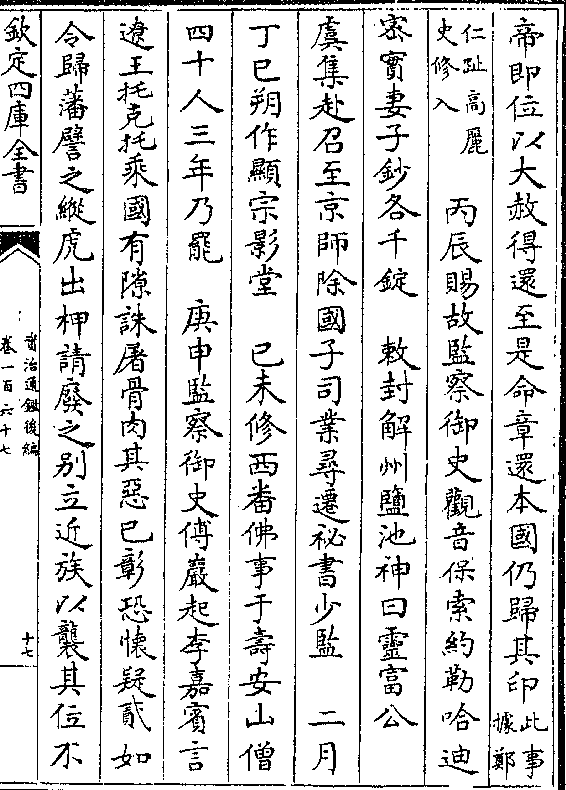 帝即位以大赦得還至是命章還本國仍歸其印此事據鄭
仁趾高麗史修入　丙辰賜故監察御史觀音保索約勒哈迪
密實妻子鈔各千錠　敕封解州鹽池神曰靈富公
虞集赴召至京師除國子司業尋遷祕書少監　二月
丁巳朔作顯宗影堂　己未修西番佛事于壽安山僧
四十人三年乃罷　庚申監察御史傅巖起李嘉賓言
遼王托克托乘國有隙誅屠骨肉其惡已彰恐懷疑貳如
令歸藩譬之縱虎出柙請廢之别立近族以襲其位不
欽定四庫全書
資治通鑑後編
卷一百六十七
十七